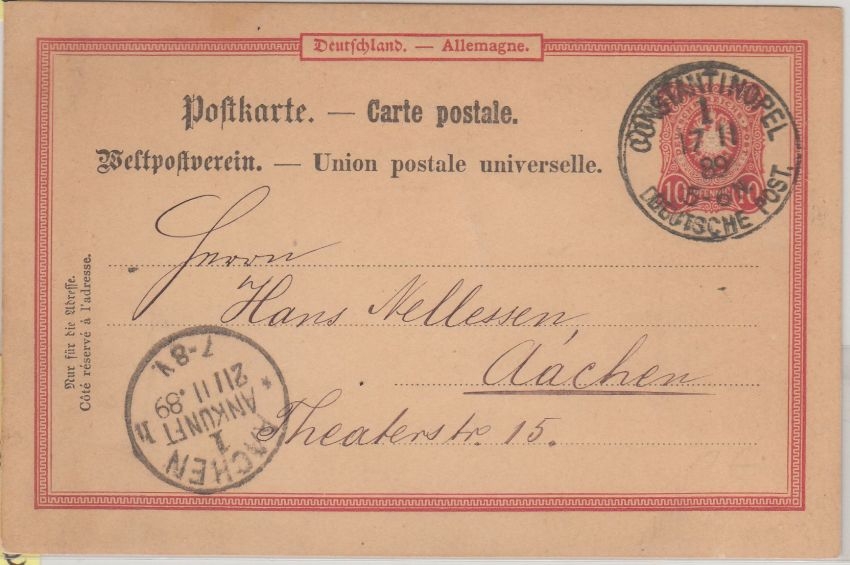 Deutschland. — Allemagne.
Postkarte. — Carte postale.
Weltpostverein. — Union postale universelle.
CONSTANTINOPEL
1
17 11
89
5-6 N
DEUTSCHE POST.
10 PFENNIG 10
Nur für die Adresse.
Côté réservé à l'adresse.
Herrn
Hans Nellessen,
Aachen
Theaterstr. 15.
AACHEN
1
ANKUNFT
21 11.89
7-8 V.